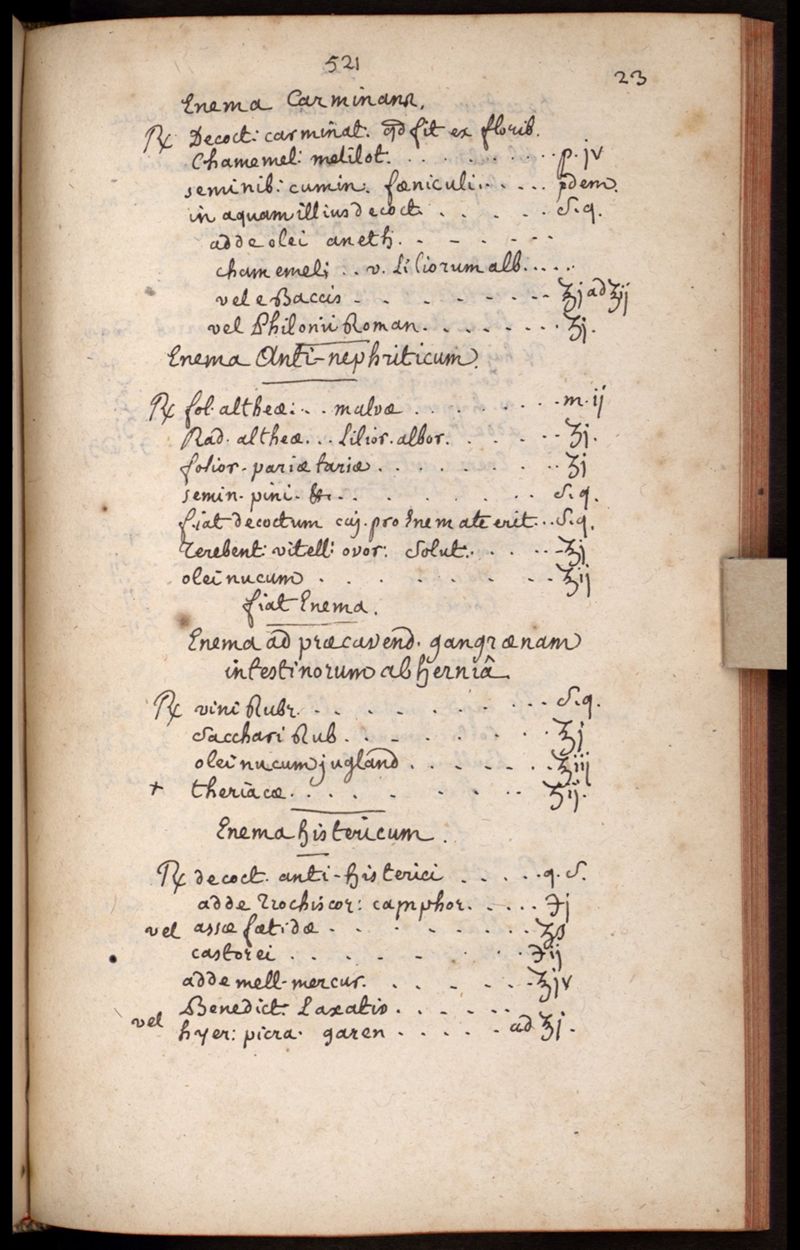 521
23
Enema Carminans.
℞ Decoct: carminat. qd fit ex florib.
Chamemel: melilot. . . . . . . . . . p. jv
seminib: cumin. fæniculi. . . . . . pdem.
in aquam illius decoct . . . . . S. q.
adde olei aneth. . . . . . .
chamemeli . . v. Liliorum alb. . . . .
vel e Baccis . . . . . . . . ʒj ad ʒij
vel Philonii Roman. . . . . . . . ʒj.
Enema Anti-nephriticum.
℞ fol. altheæ: . . malvæ . . . . . . . . m. ij
Rad. altheæ . . . Lilior. albor. . . . . . . ʒj.
folior. pariætariæ . . . . . . . . ʒj
semin. pini. &. . . . . . . . . S. q.
fiat decoctum cuj. pro Enemate erit . . S. q.
Terebent: vitell: ovor. Solut. . . . . . ʒj
olei nucum . . . . . . . . . ʒij
fiat Enema.
Enema ad præcavend. gangrænam
intestinorum ab Herniâ.
℞ vini Rubr. . . . . . . . . . S. q.
Sacchari Rub . . . . . . . ʒj
olei nucum jugland . . . . . . . ʒiij
+ theriacæ . . . . . . . . . ʒij.
Enema histericum.
℞ decoct. anti-histerici . . . . . q. S.
adde Trochiscor: camphor. . . . . ℈j
vel assæ fætidæ . . . . . . . . ʒs
castorei . . . . . . . . . ℈ij
adde mell-mercur. . . . . . . ʒjv
Benedict: Laxativ . . . . . .
vel hyer: picra. galen . . . . . ad ʒj.